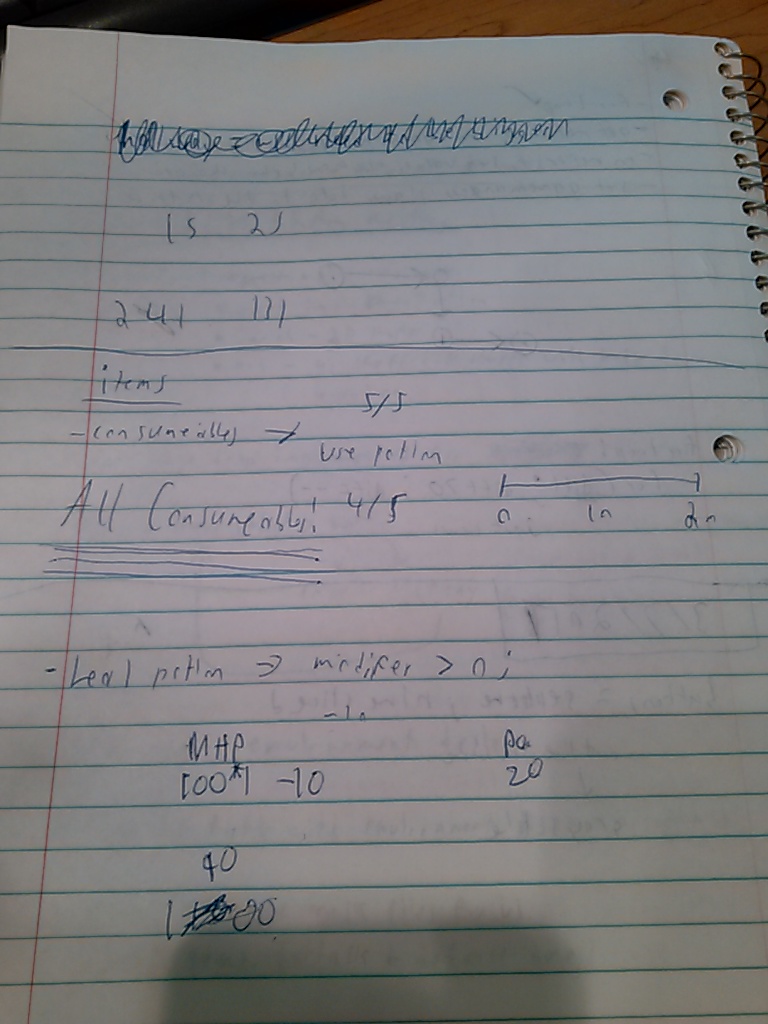 15 25
241 131
items
5/5
-consumeables →
use potion
All Consumeables! 4/5
0 10 20
-heal potion => modifier > 0;
-10
MHP
100*1 -10 20
90
100